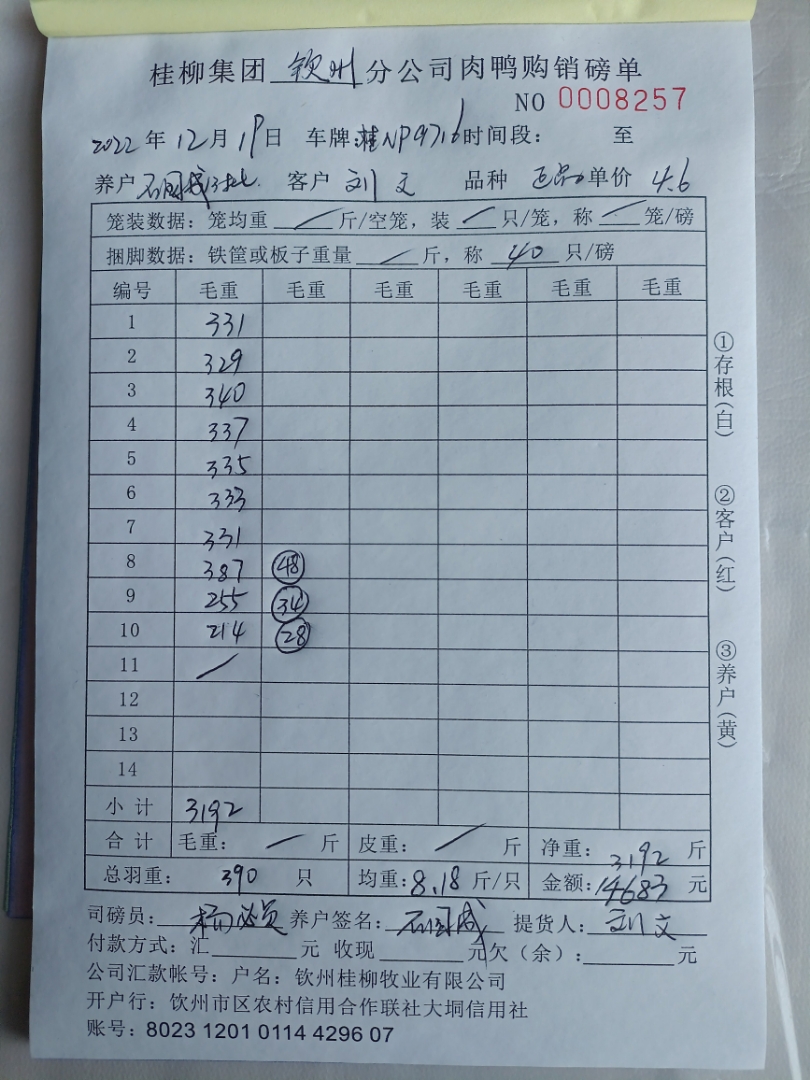 桂柳集团 钦州 分公司肉鸭购销磅单
NO 0008257
2022 年 12 月 19 日 车牌: 桂NP9716 时间段: 至
养户 石国成 客户 刘文 品种 单价 4.6
笼装数据: 笼均重 / 斤/空笼, 装 / 只/笼, 称 / 笼/磅
捆脚数据: 铁筐或板子重量 / 斤, 称 40 只/磅
编号 毛重 毛重 毛重 毛重 毛重 毛重
1 331
2 329
3 340
4 337
5 335
6 333
7 331
8 387 48
9 255 34
10 214 28
11 /
12
13
14
小计 3192
合计 毛重: / 斤 皮重: / 斤 净重: 3192 斤
总羽重: 390 只 均重: 8.18 斤/只 金额: 14683 元
司磅员: 杨 养户签名: 石国成 提货人: 刘文
付款方式: 汇 元 收现 元欠(余): 元
公司汇款帐号: 户名: 钦州桂柳牧业有限公司
开户行: 钦州市区农村信用合作联社大垌信用社
账号: 8023 1201 0114 4296 07
①存根(白) ②客户(红) ③养户(黄)